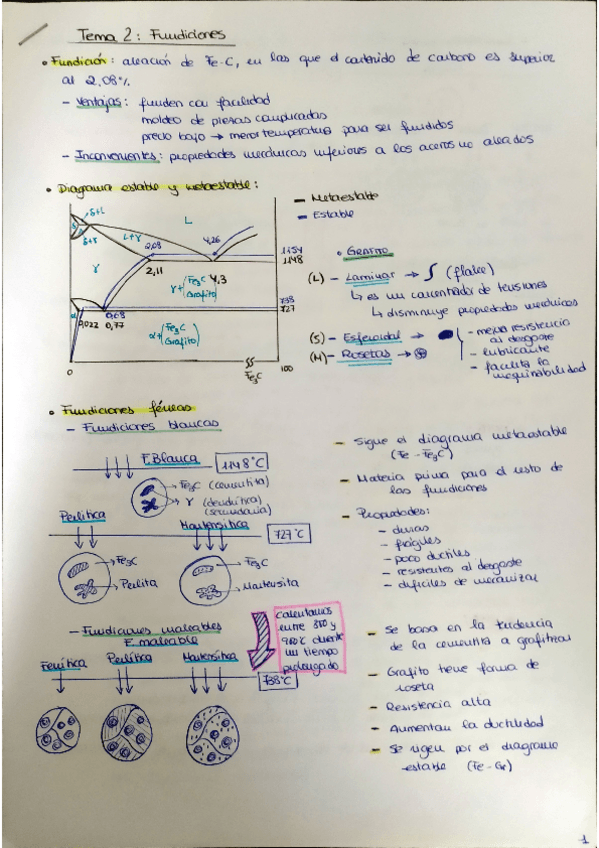 Tema 2: Fundiciones
• Fundición: aleación de Fe-C, en las que el contenido de carbono es superior
al 2,08%
- Ventajas: funden con facilidad
moldeo de piezas complicadas
precio bajo → menor temperatura para ser fundidos
- Inconvenientes: propiedades mecánicas inferiores a los aceros no aleados
• Diagrama estable y metaestable:
- Metaestable
- Estable
δ+L
δ
δ+γ
L+γ
L
γ
2,08
4,26
1154
1148
2,11
4,3
γ+(Fe₃C
Grafito)
738
727
α
0,68
0,022 0,77
α+(Fe₃C
Grafito)
0
Fe₃C
100
• Grafito
(L) - Laminar → (flake)
↳ es un concentrador de tensiones
↳ disminuye propiedades mecánicas
(S) - Esferoidal →
(M) - Rosetas →
- mejora resistencia
al desgaste
- lubricante
- facilita la
maquinabilidad
• Fundiciones férreas
- Fundiciones blancas
F. Blanca
1148°C
Fe₃C (cementita)
γ (dendrítica)
(secundaria)
Perlítica
Martensítica
727°C
Fe₃C
Perlita
Fe₃C
Martensita
- Sigue el diagrama metaestable
(Fe-Fe₃C)
- Materia prima para el resto de
las fundiciones
- Propiedades:
- duras
- frágiles
- poco ductiles
- resistentes al desgaste
- dificiles de mecanizar
- Fundiciones maleables
F. maleable
Ferrítica
Perlítica
Martensítica
Calentamos
entre 850 y
900°C durante
un tiempo
prolongado
738°C
- Se basa en la tendencia
de la cementita a grafitizar
- Grafito tiene forma de
roseta
- Resistencia alta
- Aumentan la ductilidad
- Se rigen por el diagrama
estable (Fe-Gr)
1